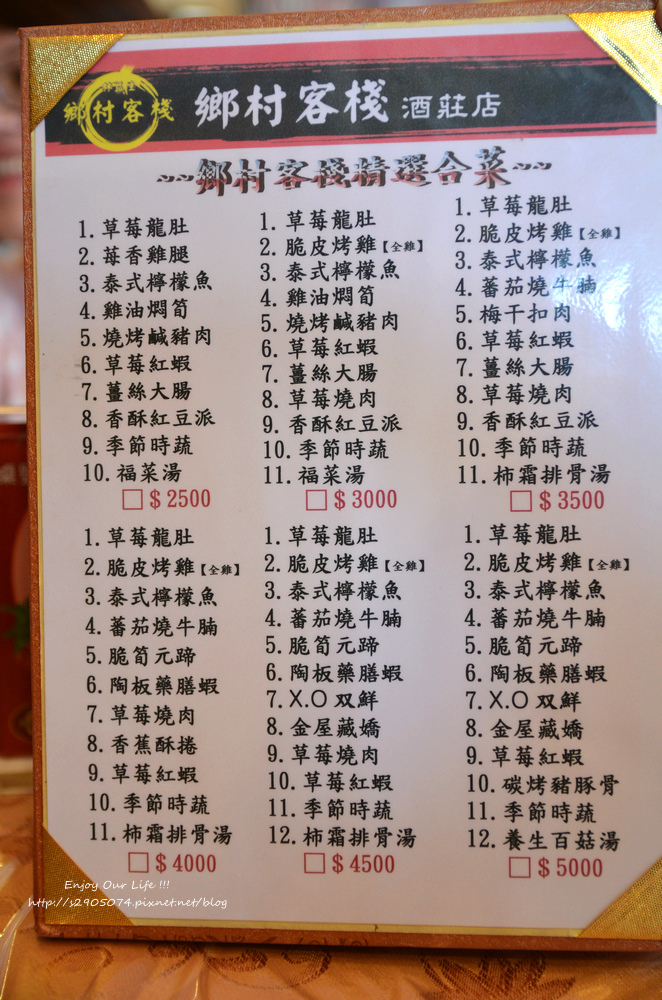 鄉村客棧
鄉村客棧 酒莊店
~~鄉村客棧精選合菜~~
1.草莓龍肚
2.苺香雞腿
3.泰式檸檬魚
4.雞油燜筍
5.燒烤鹹豬肉
6.草莓紅蝦
7.薑絲大腸
8.香酥紅豆派
9.季節時蔬
10.福菜湯
□$2500
1.草莓龍肚
2.脆皮烤雞【全雞】
3.泰式檸檬魚
4.雞油燜筍
5.燒烤鹹豬肉
6.草莓紅蝦
7.薑絲大腸
8.草莓燒肉
9.香酥紅豆派
10.季節時蔬
11.福菜湯
□$3000
1.草莓龍肚
2.脆皮烤雞【全雞】
3.泰式檸檬魚
4.蕃茄燒牛腩
5.梅干扣肉
6.草莓紅蝦
7.薑絲大腸
8.草莓燒肉
9.香酥紅豆派
10.季節時蔬
11.柿霜排骨湯
□$3500
1.草莓龍肚
2.脆皮烤雞【全雞】
3.泰式檸檬魚
4.蕃茄燒牛腩
5.脆筍元蹄
6.陶板藥膳蝦
7.草莓燒肉
8.香蕉酥捲
9.草莓紅蝦
10.季節時蔬
11.柿霜排骨湯
□$4000
1.草莓龍肚
2.脆皮烤雞【全雞】
3.泰式檸檬魚
4.蕃茄燒牛腩
5.脆筍元蹄
6.陶板藥膳蝦
7.X.O双鮮
8.金屋藏嬌
9.草莓燒肉
10.草莓紅蝦
11.季節時蔬
12.柿霜排骨湯
□$4500
1.草莓龍肚
2.脆皮烤雞【全雞】
3.泰式檸檬魚
4.蕃茄燒牛腩
5.脆筍元蹄
6.陶板藥膳蝦
7.X.O双鮮
8.金屋藏嬌
9.草莓紅蝦
10.碳烤豬豚骨
11.季節時蔬
12.養生百菇湯
□$5000
Enjoy Our Life !!!
http://s2905074.pixnet.net/blog